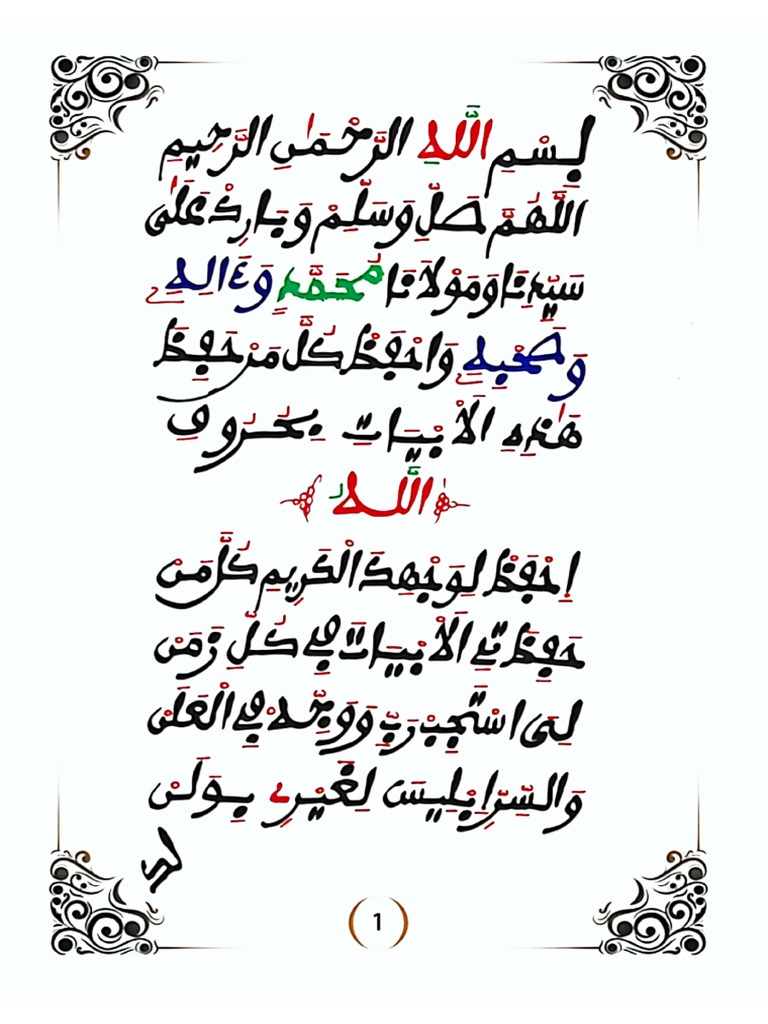 بِسْمِ اللَّهِ الرَّحْمَٰنِ الرَّحِيمِ
اللَّهُمَّ صَلِّ وَسَلِّمْ وَبَارِكْ عَلَىٰ
سَيِّدِنَا وَمَوْلَانَا مُحَمَّدٍ وَءَالِهِ
وَصَحْبِهِ وَاحْفَظْ كُلَّ مَنْ حَفِظَ
هَٰذِهِ الْأَبْيَاتِ بِحُرُوفِ
اللَّهُ
اِحْفَظْ لِوَجْهِكَ الْكَرِيمِ كُلَّ مَنْ
حَفِظَ تِي الْأَبْيَاتَ فِي كُلِّ زَمَنْ
لِيَ اسْتَجِبْ رَبِّ وَوَجِّهْ فِي الْعَلَنْ
وَالسِّرِّ إِبْلِيسَ لِغَيْرِي
لد
1